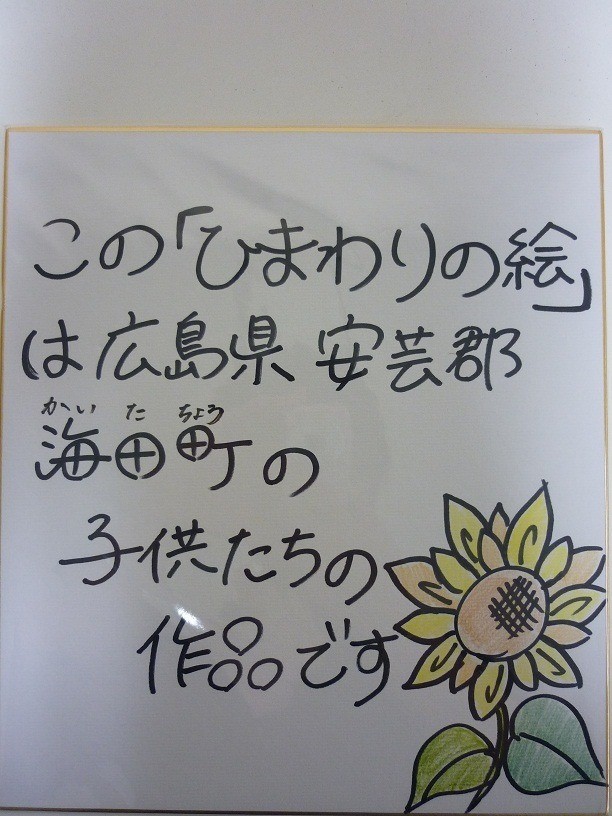 この「ひまわりの絵」
は広島県 安芸郡
かいた ちょう
海田町の
子供たちの
作品です